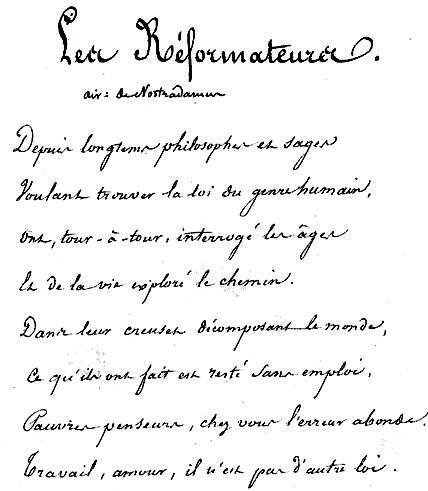 Les Réformateurs.
air: de Nostradamus
Depuis longtems philosophes et sages
Voulant trouver la loi du genre humain,
Ont, tour-à-tour, interrogé les âges
Et de la vie exploré le chemin.
Dans leur creuset décomposant le monde,
Ce qu'ils ont fait est resté sans emploi,
Pauvres penseurs, chez vous l'erreur abonde.
Travail, amour, il n'est pas d'autre loi.